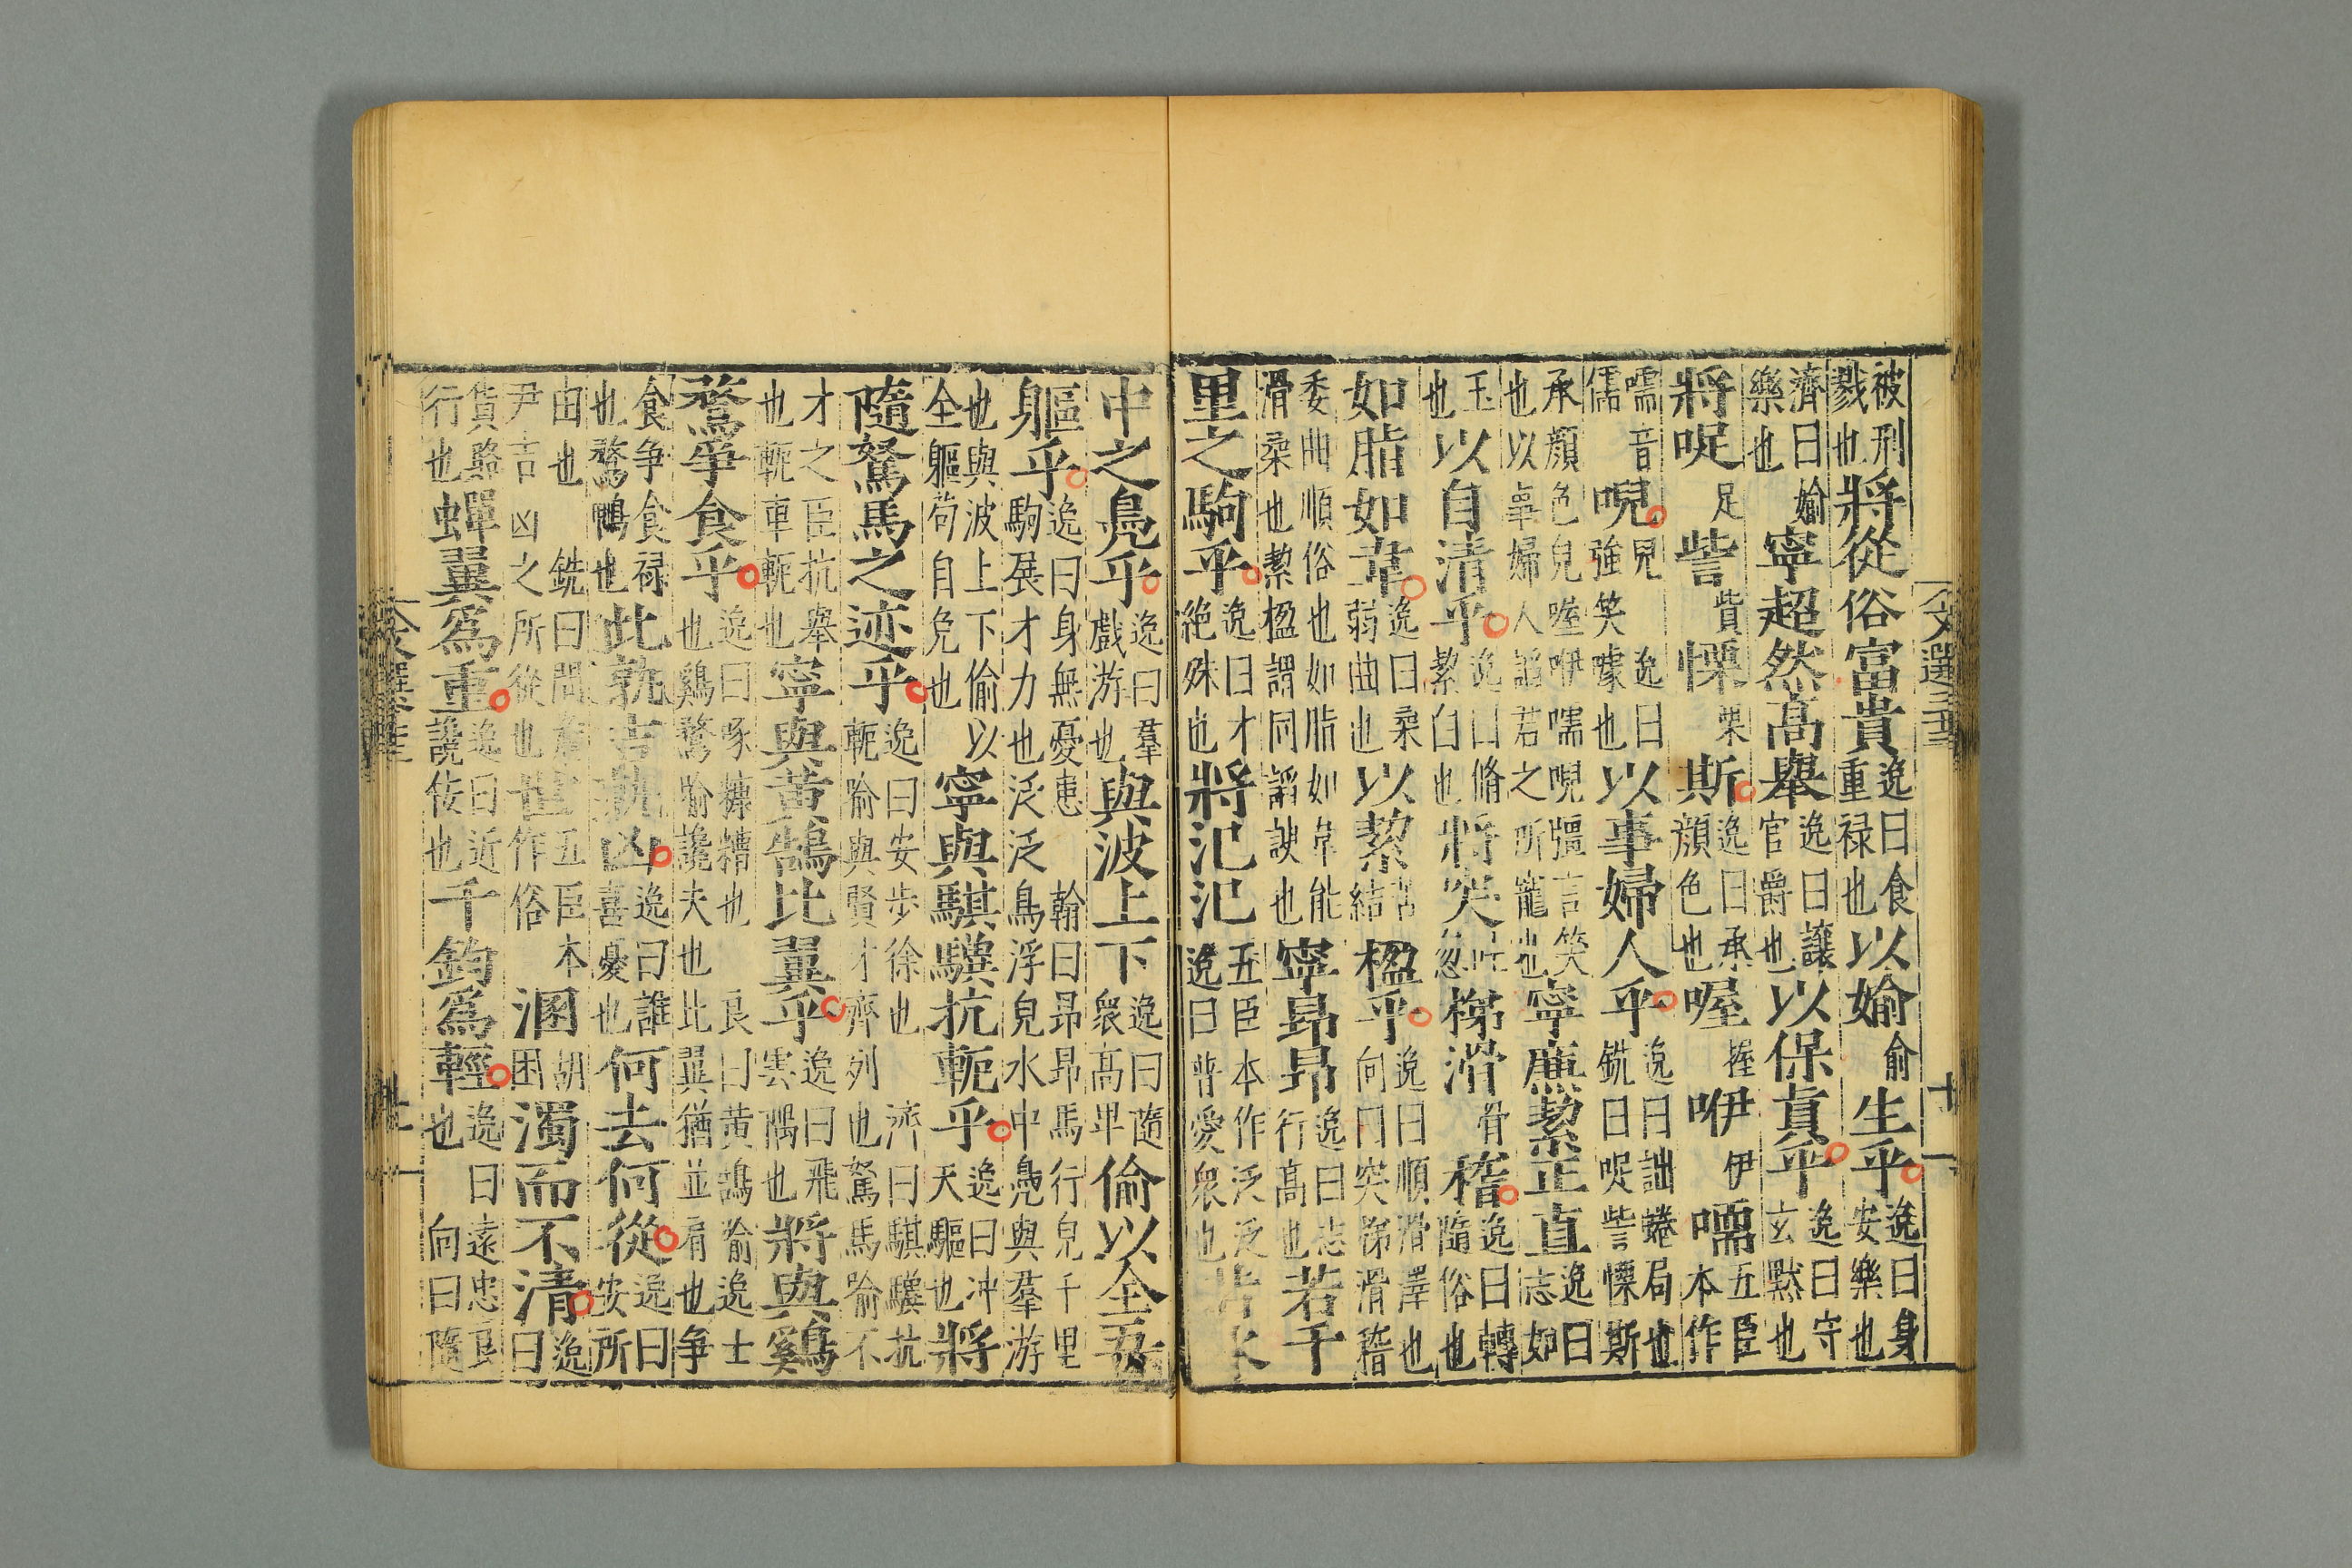 被刑戮也將從俗富貴逸曰食重禄也以媮俞生乎逸曰身安樂也
濟曰媮樂也寧超然高舉逸曰讓官爵也以保真乎逸曰守玄黙也
將哫足訾貲慄栗斯逸曰承顔色也喔握咿伊嚅五臣本作
嚅音儒唲兒逸曰強笑噱也以事婦人乎逸曰詘蜷局也銑曰哫訾慄斯
承顔色皃喔咿嚅唲彊言笑也以事婦人謟若之所寵也寧廉絜正直逸曰志如
玉也以自清乎逸曰脩絜白也將突吐忽梯滑骨稽逸曰轉隨俗也
如脂如韋逸曰柔弱曲也以絜苦結楹乎逸曰順滑澤也向曰突梯滑稽
委曲順俗也如脂如韋能滑柔也絜楹謂同謟諛也寧昂昂逸曰志行高也若千
里之駒乎逸曰才絶殊也將氾氾五臣本作泛泛逸曰普愛衆也若水
文選三十三
中之鳧乎逸曰羣戲游也與波上下逸曰隨衆高卑偷以全吾
軀乎逸曰身無憂患翰曰昂昂馬行皃千里駒展才力也泛泛鳥浮皃水中鳧與羣游
也與波上下偷以全軀苟自免也寧與騏驥抗軛乎逸曰冲天驅也將
隨駑馬之迹乎逸曰安步徐也濟曰騏驥抗軛喻與賢才齊列也駑馬喻不
才之臣抗舉也軛車軛也寧與黄鵠比翼乎逸曰飛雲隅也將與鷄
鶩爭食乎逸曰啄糠糟也良曰黄鵠喻逸士也鷄鶩喻讒夫也比翼猶並肩也争
食争食禄也鶩鴨也此孰吉孰凶逸曰誰喜憂也何去何從逸曰安所
由也銑曰問詹尹吉凶之所從也世五臣本作俗溷胡困濁而不清逸曰
貨賂行也蟬翼爲重逸曰近讒佞也千鈞爲輕逸曰遠忠良也向曰隨